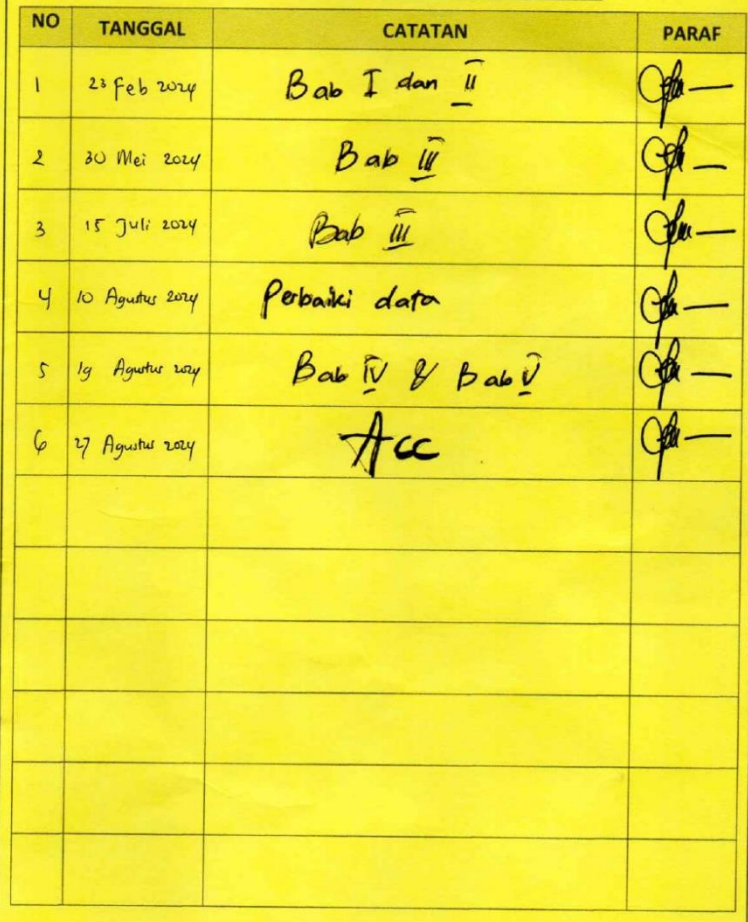 NO TANGGAL CATATAN PARAF
1 23 Feb 2024 Bab I dan II
2 30 Mei 2024 Bab III
3 15 Juli 2024 Bab III
4 10 Agustus 2024 Perbaiki data
5 19 Agustus 2024 Bab IV & Bab V
6 27 Agustus 2024 Acc